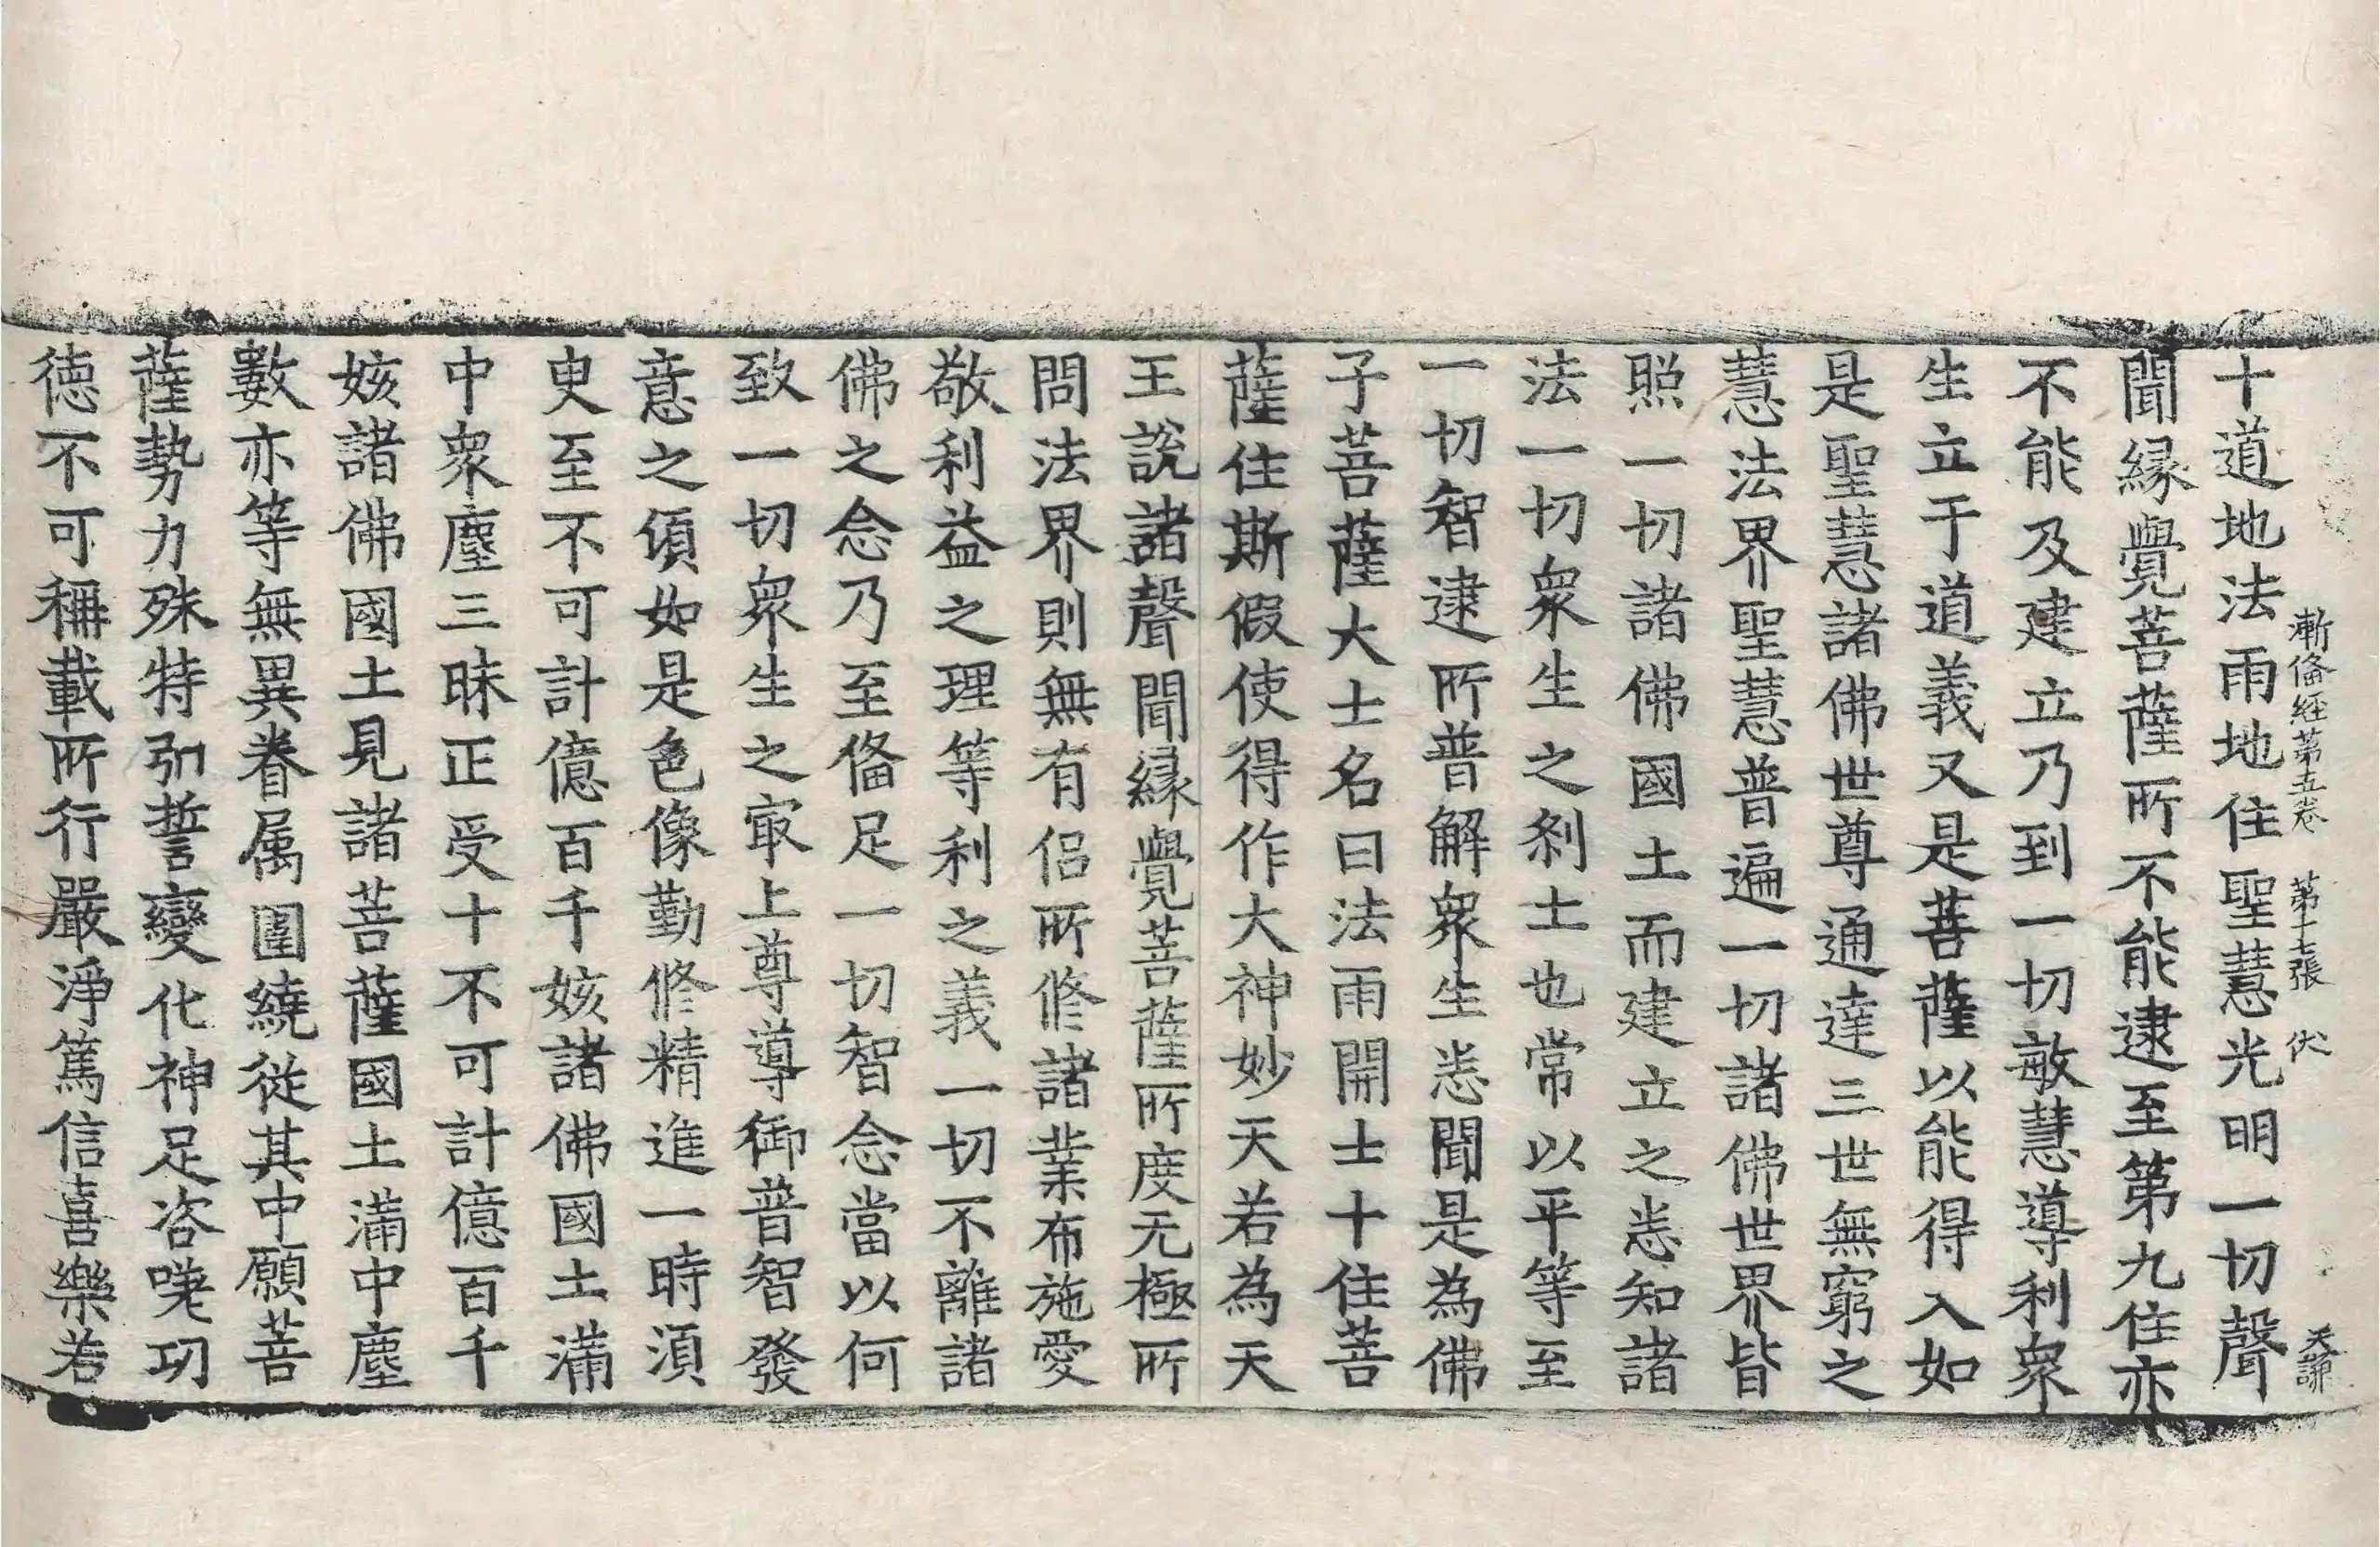 漸俻経第五卷 第十七張 伏 天謙
十道地法雨地住聖慧光明一切聲
聞緣覺菩薩所不能逮至第九住亦
不能及建立乃到一切敏慧導利衆
生立于道義又是菩薩以能得入如
是聖慧諸佛世尊通達三世無窮之
慧法界聖慧普遍一切諸佛世界皆
照一切諸佛國土而建立之悉知諸
法一切衆生之刹土也常以平等至
一切智逮所普解衆生悉聞是為佛
子菩薩大士名曰法雨開士十住菩
薩住斯假使得作大神妙天若為天
王說諸聲聞緣覺菩薩所度无極所
問法界則無有侣所修諸業布施愛
敬利益之理等利之義一切不離諸
佛之念乃至俻足一切智念當以何
致一切衆生之㝡上尊導御普智發
意之頃如是色像勤修精進一時須
臾至不可計億百千姟諸佛國土滿
中衆塵三昧正受十不可計億百千
姟諸佛國土見諸菩薩國土滿中塵
數亦等無異眷属圍繞從其中願菩
薩勢力殊特弘誓變化神足咨嗟功
徳不可稱載所行嚴淨篤信喜樂若